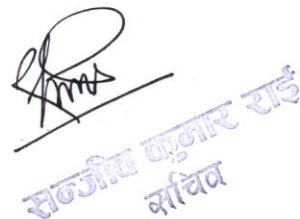 सन्जीब कुमार राई
सचिव